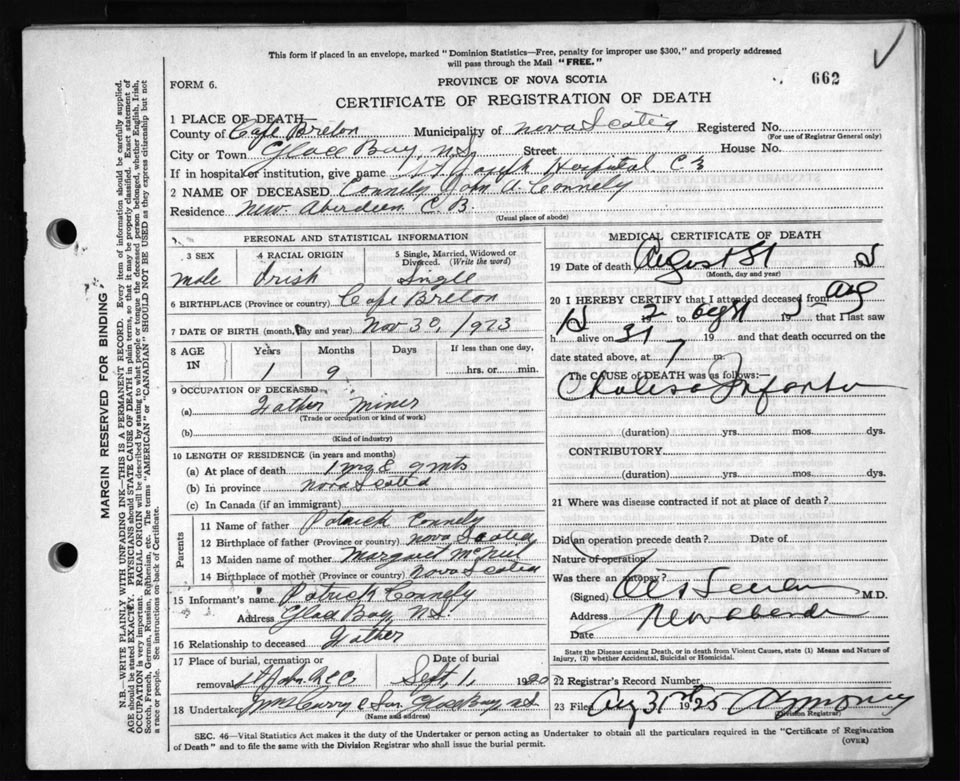 This form if placed in an envelope, marked "Dominion Statistics—Free, penalty for improper use $300," and properly addressed
will pass through the Mail "FREE."
FORM 6.
PROVINCE OF NOVA SCOTIA
662
CERTIFICATE OF REGISTRATION OF DEATH
1 PLACE OF DEATH—
County of Cape Breton Municipality of Nova Scotia Registered No.
(For use of Registrar General only)
City or Town Glace Bay, N.S. Street House No.
If in hospital or institution, give name St Joseph Hospital C B
2 NAME OF DECEASED Connely John A. Connely
Residence New Aberdeen C. B.
(Usual place of abode)
PERSONAL AND STATISTICAL INFORMATION
3 SEX 4 RACIAL ORIGIN 5 Single, Married, Widowed or Divorced. (Write the word)
male Irish Single
6 BIRTHPLACE (Province or country) Cape Breton
7 DATE OF BIRTH (month, day and year) Nov 30, 1923
8 AGE IN Years Months Days If less than one day,
1 9 hrs. or min.
9 OCCUPATION OF DECEASED
(a) Father Miner
(Trade or occupation or kind of work)
(b)
(Kind of industry)
10 LENGTH OF RESIDENCE (in years and months)
(a) At place of death 1 9 mts
(b) In province Nova Scotia
(c) In Canada (if an immigrant)
Parents
11 Name of father Patrick Connely
12 Birthplace of father (Province or country) Nova Scotia
13 Maiden name of mother Margaret McNeil
14 Birthplace of mother (Province or country) Nova Scotia
15 Informant's name Patrick Connely
Address Glace Bay, N.S.
16 Relationship to deceased Father
17 Place of burial, cremation or Date of burial
removal St John Sept, 1, 19
18 Undertaker Curry & Son. Glace Bay N.S.
(Name and address)
MEDICAL CERTIFICATE OF DEATH
19 Date of death August 31 192
(Month, day and year)
20 I HEREBY CERTIFY that I attended deceased from Aug
2 to 192 , that I last saw
h alive on 31 19 and that death occurred on the
date stated above, at 7 m.
The CAUSE OF DEATH was as follows:—
Cholera Infantum
(duration) yrs. mos. dys.
CONTRIBUTORY
(duration) yrs. mos. dys.
21 Where was disease contracted if not at place of death?
Did an operation precede death? Date of
Nature of operation
Was there an autopsy?
(Signed) M.D.
Address New Aberdeen
Date
State the Disease causing Death, or in death from Violent Causes, state (1) Means and Nature of
Injury, (2) whether Accidental, Suicidal or Homicidal.
22 Registrar's Record Number
23 Filed Aug 31st 1925
Division Registrar)
SEC. 46—Vital Statistics Act makes it the duty of the Undertaker or person acting as Undertaker to obtain all the particulars required in the "Certificate of Registration
of Death" and to file the same with the Division Registrar who shall issue the burial permit.
(OVER)
MARGIN RESERVED FOR BINDING
N.B.—WRITE PLAINLY WITH UNFADING INK—THIS IS A PERMANENT RECORD. Every item of information should be carefully supplied.
AGE should be stated EXACTLY. PHYSICIANS should STATE CAUSE OF DEATH in plain terms, so that it may be properly classified. Exact statement of
OCCUPATION is very important. RACIAL ORIGIN will be described by stating to what people or tongue the deceased person belonged, whether English, Irish,
Scotch, French, German, Russian, Ruthenian, etc. The terms "AMERICAN" or "CANADIAN" SHOULD NOT BE USED as they express citizenship but not
a race or people. See instructions on back of Certificate.